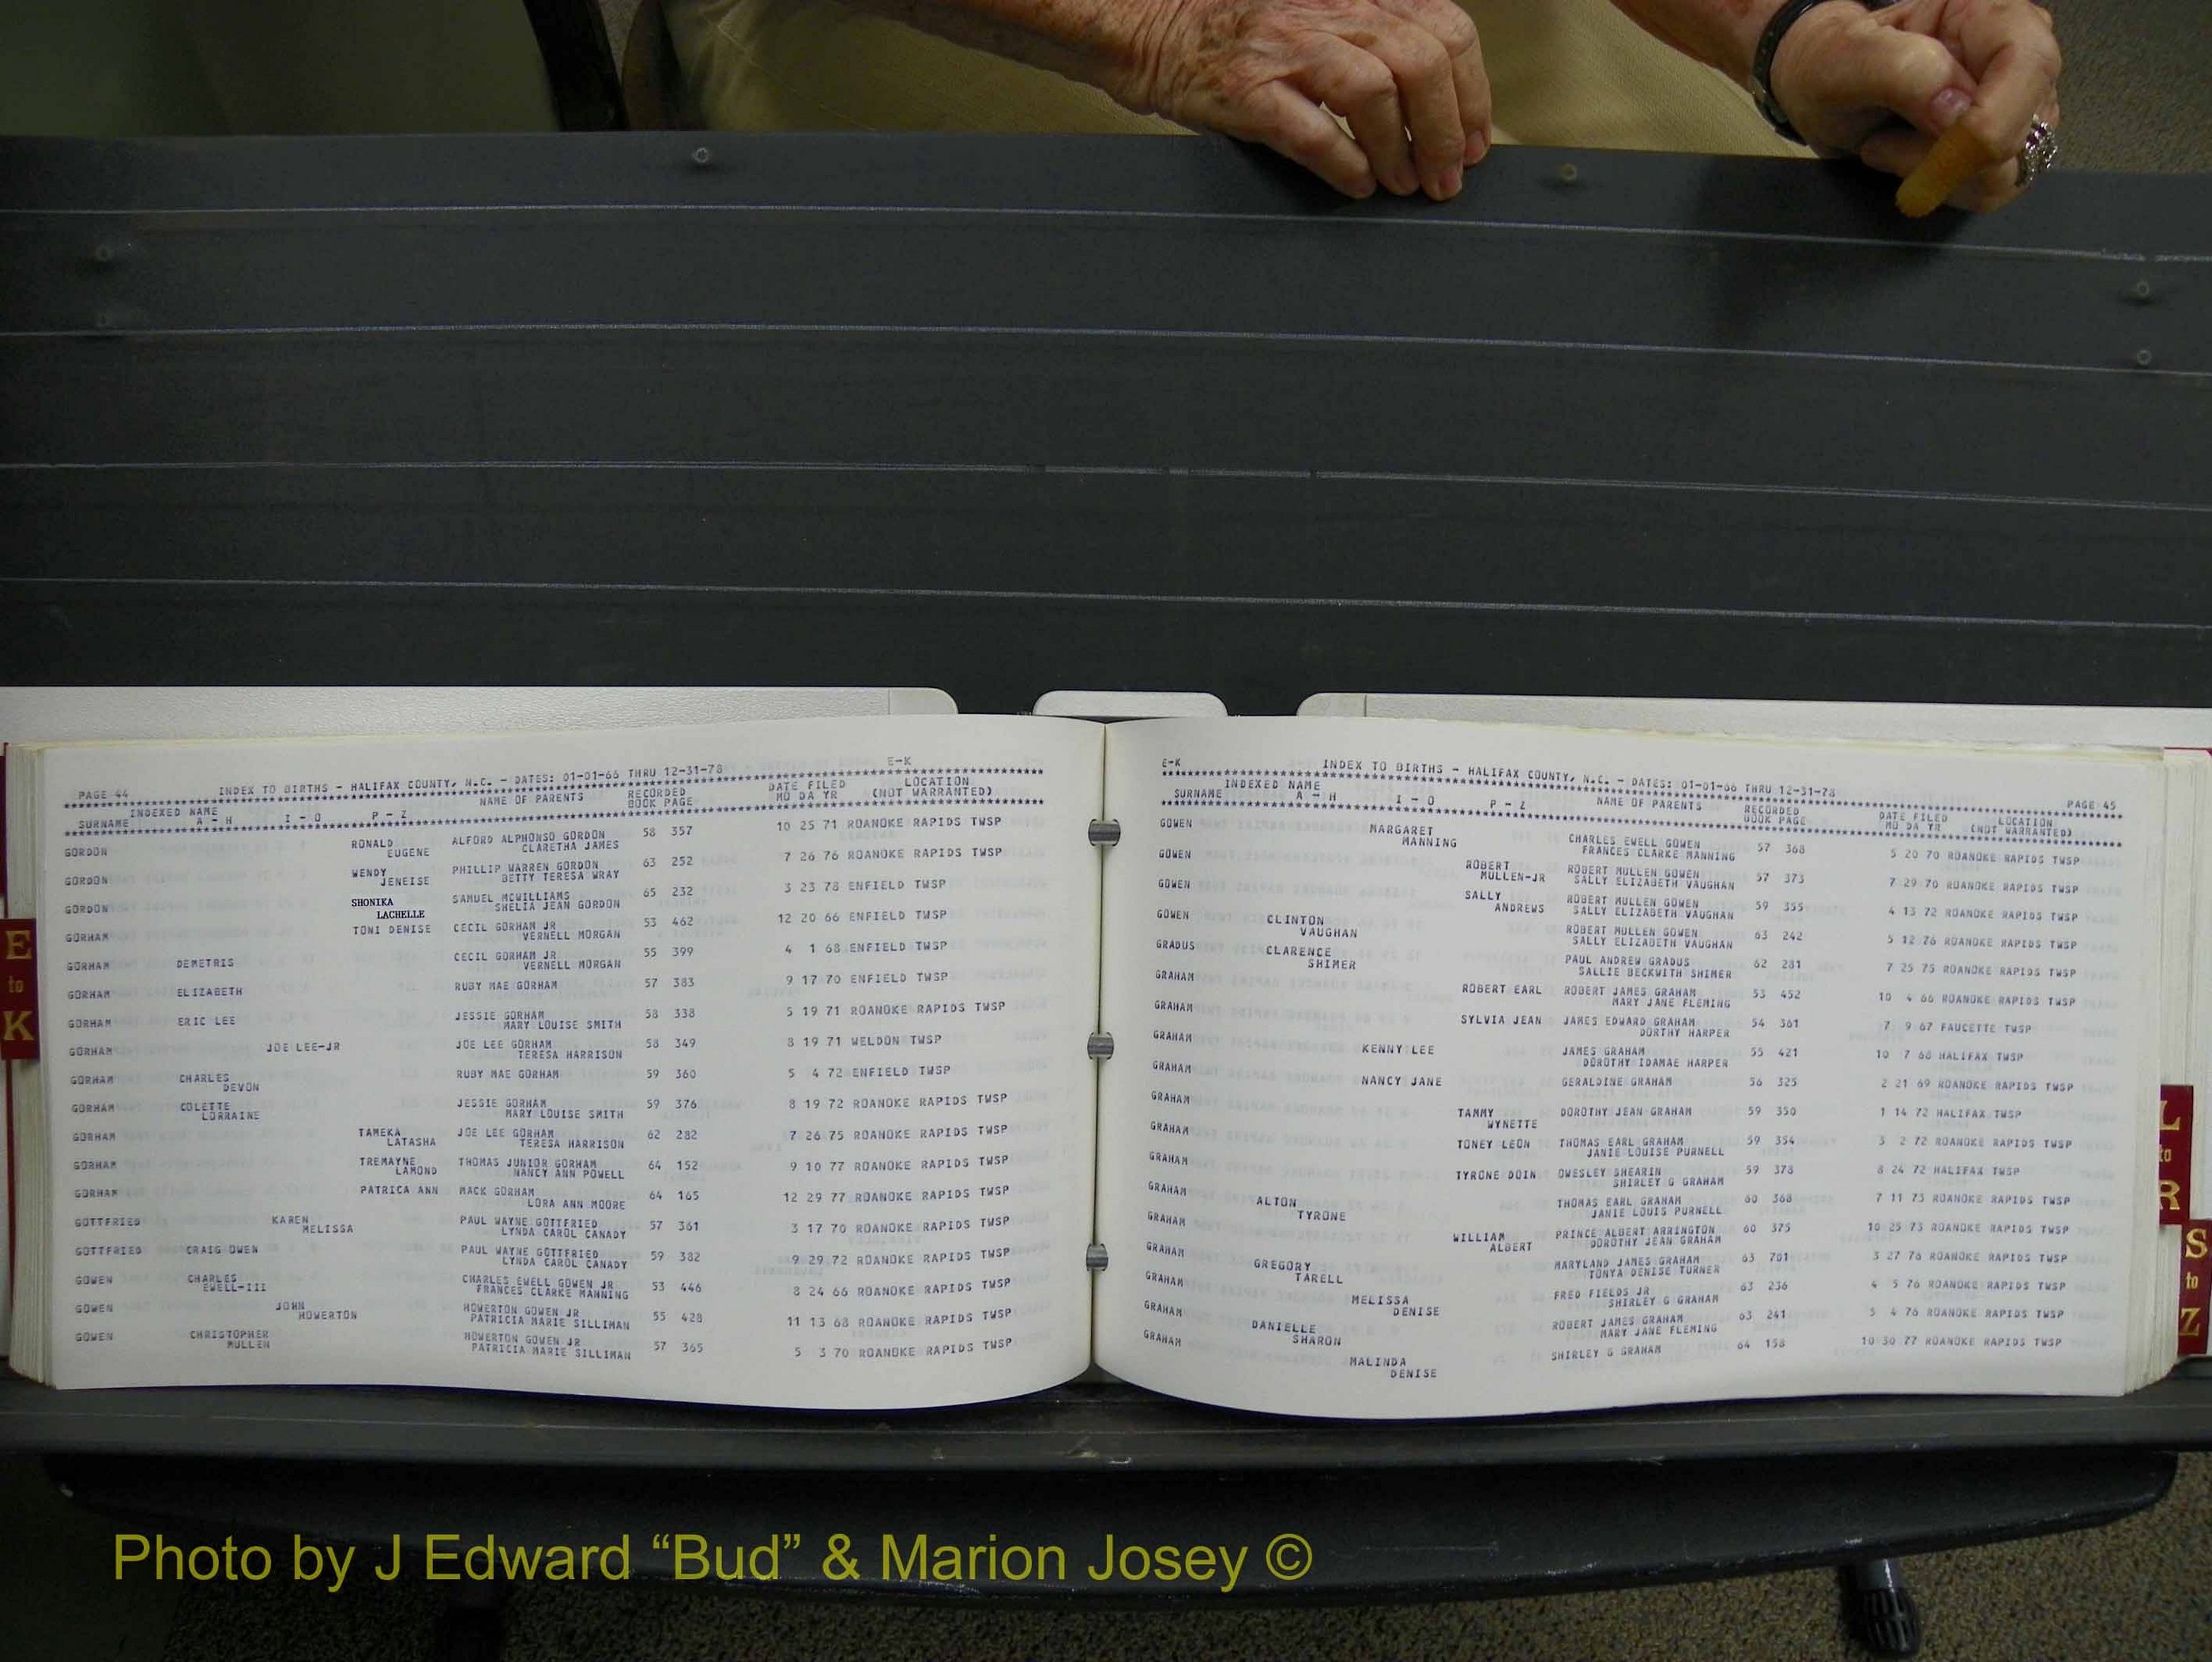 PAGE 44 INDEX TO BIRTHS - HALIFAX COUNTY, N.C. - DATES: 01-01-66 THRU 12-31-78 E-K
INDEXED NAME NAME OF PARENTS RECORDED DATE FILED LOCATION
SURNAME A - H I - O P - Z BOOK PAGE MO DA YR (NOT WARRANTED)
GORDON RONALD ALFORD ALPHONSO GORDON 58 357 10 25 71 ROANOKE RAPIDS TWSP
EUGENE CLARETHA JAMES
GORDON WENDY PHILLIP WARREN GORDON 63 252 7 26 76 ROANOKE RAPIDS TWSP
JENEISE BETTY TERESA WRAY
GORDON SHONIKA SAMUEL MCWILLIAMS 65 232 3 23 78 ENFIELD TWSP
LACHELLE SHELIA JEAN GORDON
GORHAM TONI DENISE CECIL GORHAM JR 53 462 12 20 66 ENFIELD TWSP
VERNELL MORGAN
GORHAM DEMETRIS CECIL GORHAM JR 55 399 4 1 68 ENFIELD TWSP
VERNELL MORGAN
GORHAM ELIZABETH RUBY MAE GORHAM 57 383 9 17 70 ENFIELD TWSP
GORHAM ERIC LEE JESSIE GORHAM 58 338 5 19 71 ROANOKE RAPIDS TWSP
MARY LOUISE SMITH
GORHAM JOE LEE-JR JOE LEE GORHAM 58 349 8 19 71 WELDON TWSP
TERESA HARRISON
GORHAM CHARLES RUBY MAE GORHAM 59 360 5 4 72 ENFIELD TWSP
DEVON
GORHAM COLETTE JESSIE GORHAM 59 376 8 19 72 ROANOKE RAPIDS TWSP
LORRAINE MARY LOUISE SMITH
GORHAM TAMEKA JOE LEE GORHAM 62 282 7 26 75 ROANOKE RAPIDS TWSP
LATASHA TERESA HARRISON
GORHAM TREMAYNE THOMAS JUNIOR GORHAM 64 152 9 10 77 ROANOKE RAPIDS TWSP
LAMOND NANCY ANN POWELL
GORHAM PATRICA ANN MACK GORHAM 64 165 12 29 77 ROANOKE RAPIDS TWSP
LORA ANN MOORE
GOTTFRIED KAREN PAUL WAYNE GOTTFRIED 57 361 3 17 70 ROANOKE RAPIDS TWSP
MELISSA LYNDA CAROL CANADY
GOTTFRIED CRAIG OWEN PAUL WAYNE GOTTFRIED 59 382 9 29 72 ROANOKE RAPIDS TWSP
LYNDA CAROL CANADY
GOWEN CHARLES CHARLES EWELL GOWEN JR 53 446 8 24 66 ROANOKE RAPIDS TWSP
EWELL-III FRANCES CLARKE MANNING
GOWEN JOHN HOWERTON GOWEN JR 55 428 11 13 68 ROANOKE RAPIDS TWSP
HOWERTON PATRICIA MARIE SILLIMAN
GOWEN CHRISTOPHER HOWERTON GOWEN JR 57 365 5 3 70 ROANOKE RAPIDS TWSP
MULLEN PATRICIA MARIE SILLIMAN
E-K INDEX TO BIRTHS - HALIFAX COUNTY, N.C. - DATES: 01-01-66 THRU 12-31-78 PAGE 45
INDEXED NAME NAME OF PARENTS RECORDED DATE FILED LOCATION
SURNAME A - H I - O P - Z BOOK PAGE MO DA YR (NOT WARRANTED)
GOWEN MARGARET CHARLES EWELL GOWEN 57 368 5 20 70 ROANOKE RAPIDS TWSP
MANNING FRANCES CLARKE MANNING
GOWEN ROBERT ROBERT MULLEN GOWEN 57 373 7 29 70 ROANOKE RAPIDS TWSP
MULLEN-JR SALLY ELIZABETH VAUGHAN
GOWEN SALLY ROBERT MULLEN GOWEN 59 355 4 13 72 ROANOKE RAPIDS TWSP
ANDREWS SALLY ELIZABETH VAUGHAN
GOWEN CLINTON ROBERT MULLEN GOWEN 63 242 5 12 76 ROANOKE RAPIDS TWSP
VAUGHAN SALLY ELIZABETH VAUGHAN
GRADUS CLARENCE PAUL ANDREW GRADUS 62 281 7 25 75 ROANOKE RAPIDS TWSP
SHIMER SALLIE BECKWITH SHIMER
GRAHAM ROBERT EARL ROBERT JAMES GRAHAM 53 452 10 4 66 ROANOKE RAPIDS TWSP
MARY JANE FLEMING
GRAHAM SYLVIA JEAN JAMES EDWARD GRAHAM 54 361 7 9 67 FAUCETTE TWSP
DORTHY HARPER
GRAHAM KENNY LEE JAMES GRAHAM 55 421 10 7 68 HALIFAX TWSP
DOROTHY IDAMAE HARPER
GRAHAM NANCY JANE GERALDINE GRAHAM 56 325 2 21 69 ROANOKE RAPIDS TWSP
GRAHAM TAMMY DOROTHY JEAN GRAHAM 59 350 1 14 72 HALIFAX TWSP
WYNETTE
GRAHAM TONEY LEON THOMAS EARL GRAHAM 59 354 3 2 72 ROANOKE RAPIDS TWSP
JANIE LOUISE PURNELL
GRAHAM TYRONE DOIN OWESLEY SHEARIN 59 378 8 24 72 HALIFAX TWSP
SHIRLEY G GRAHAM
GRAHAM ALTON THOMAS EARL GRAHAM 60 368 7 11 73 ROANOKE RAPIDS TWSP
TYRONE JANIE LOUIS PURNELL
GRAHAM WILLIAM PRINCE ALBERT ARRINGTON 60 375 10 25 73 ROANOKE RAPIDS TWSP
ALBERT DOROTHY JEAN GRAHAM
GRAHAM GREGORY MARYLAND JAMES GRAHAM 63 701 3 27 76 ROANOKE RAPIDS TWSP
TARELL TONYA DENISE TURNER
GRAHAM MELISSA FRED FIELDS JR 63 236 4 5 76 ROANOKE RAPIDS TWSP
DENISE SHIRLEY G GRAHAM
GRAHAM DANIELLE ROBERT JAMES GRAHAM 63 241 5 4 76 ROANOKE RAPIDS TWSP
SHARON MARY JANE FLEMING
GRAHAM MALINDA SHIRLEY G GRAHAM 64 158 10 30 77 ROANOKE RAPIDS TWSP
DENISE
E
to
K
L
to
R
S
to
Z
Photo by J Edward “Bud” & Marion Josey ©